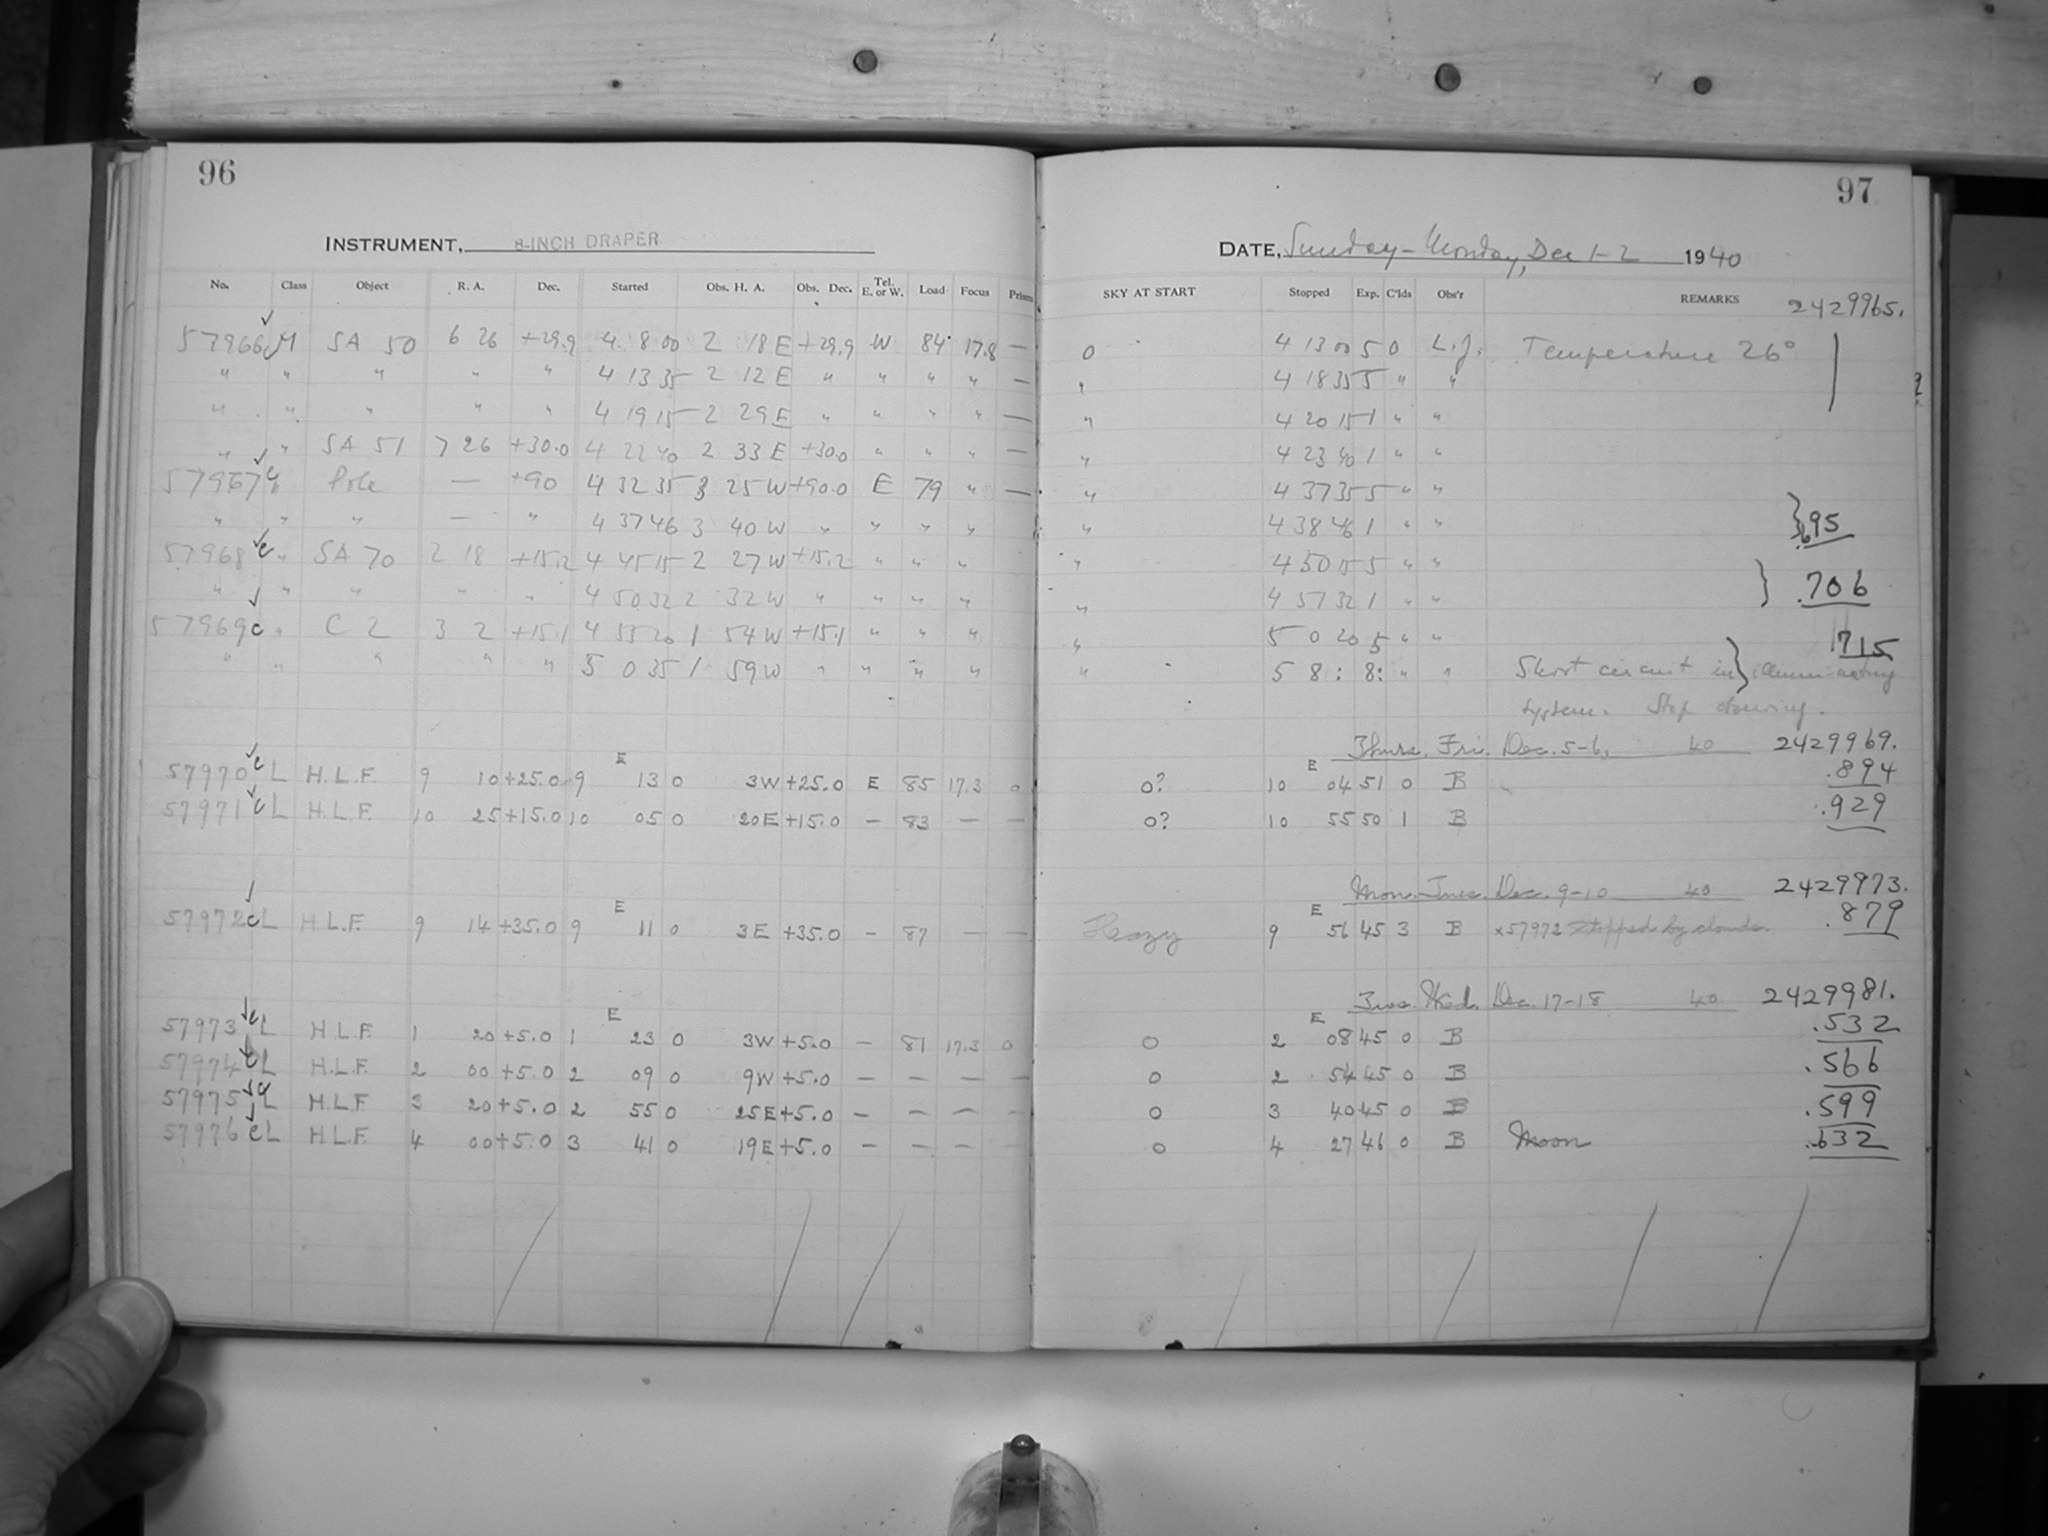 96
INSTRUMENT, 8-INCH DRAPER
No. Class Object R. A. Dec. Started Obs. H. A. Obs. Dec. Tel. E. or W. Load Focus Prism
57966 M SA 50 6 26 +29.9 4 8 00 2 18 E +29.9 W 84 17.8 —
" " " " " 4 13 35 2 12 E " " " " —
" " " " " 4 19 15 2 29 E " " " " —
" " SA 51 7 26 +30.0 4 22 40 2 33 E +30.0 " " " —
57967 c " Pole — +90 4 32 35 3 25 W +90.0 E 79 " —
" " " — " 4 37 46 3 40 W " " " "
57968 c " SA 70 2 18 +15.2 4 45 15 2 27 W +15.2 " " "
" " " " " 4 50 32 2 32 W " " " "
57969 c " C 2 3 2 +15.1 4 55 20 1 54 W +15.1 " " "
" " " " " 5 0 35 1 59 W " " " "
57970 c L H.L.F. 9 10 +25.0 9 E 13 0 3W +25.0 E 85 17.3 0
57971 c L H.L.F. 10 25 +15.0 10 05 0 20E +15.0 — 83 — —
57972 c L H.L.F. 9 14 +35.0 9 E 11 0 3E +35.0 — 87 — —
57973 c L H.L.F. 1 20 +5.0 1 E 23 0 3W +5.0 — 81 17.3 0
57974 c L H.L.F. 2 00 +5.0 2 09 0 9W +5.0 — — — —
57975 c L H.L.F. 3 20 +5.0 2 55 0 25E +5.0 — — — —
57976 c L H.L.F. 4 00 +5.0 3 41 0 19E +5.0 — — — —
97
DATE, Sunday-Monday, Dec 1-2 1940
SKY AT START Stopped Exp. C'lds Obs'r REMARKS 2429965.
0 4 13 00 5 0 L.J. Temperature 26°
" 4 18 35 5 " "
" 4 20 15 1 " "
" 4 23 40 1 " "
" 4 37 35 5 " "
" 4 38 46 1 " " .695
" 4 50 15 5 " "
" 4 51 32 1 " " .706
" 5 0 20 5 " " 715
" 5 8: 8: " " Short circuit in illuminating
system. Stop observing.
Thurs. Fri. Dec. 5-6, 40 2429969.
0? 10 E 04 51 0 B .894
0? 10 55 50 1 B .929
Mon. Tues. Dec. 9-10 40 2429973.
Hazy 9 E 56 45 3 B x57972 Stopped by clouds. .879
Tues. Wed. Dec. 17-18 40 2429981.
0 2 E 08 45 0 B .532
0 2 54 45 0 B .566
0 3 40 45 0 B .599
0 4 27 46 0 B Moon .632